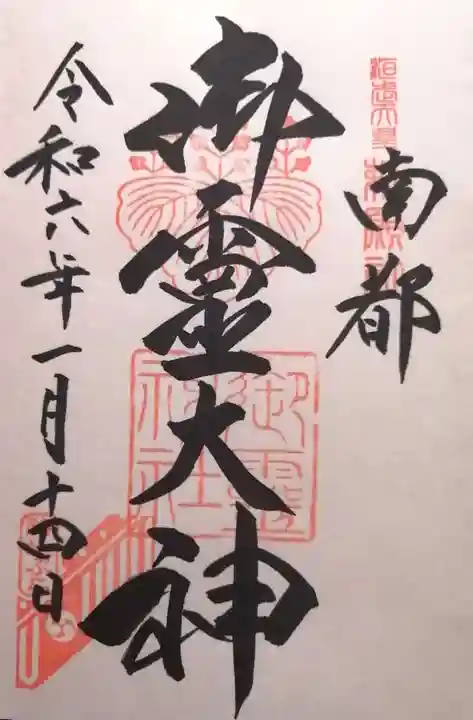 南都
御霊大神
令和六年一月十四日
御霊
神社